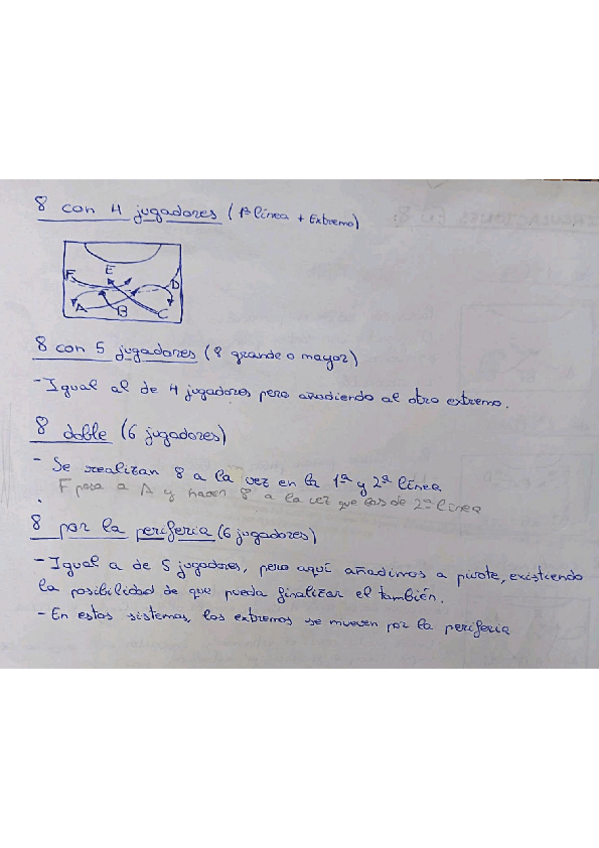 8 con 4 jugadores (1ª línea + Extremo)
F E D
A B C
8 con 5 jugadores (8 grande o mayor)
- Igual al de 4 jugadores pero añadiendo al otro extremo.
8 doble (6 jugadores)
- Se realizan 8 a la vez en la 1ª y 2ª línea.
F pasa a A y hacen 8 a la vez que los de 2ª línea
8 por la periferia (6 jugadores)
- Igual a de 5 jugadores, pero aquí añadimos a pivote, existiendo
la posibilidad de que pueda finalizar el también.
- En estos sistemas, los extremos se mueven por la periferia